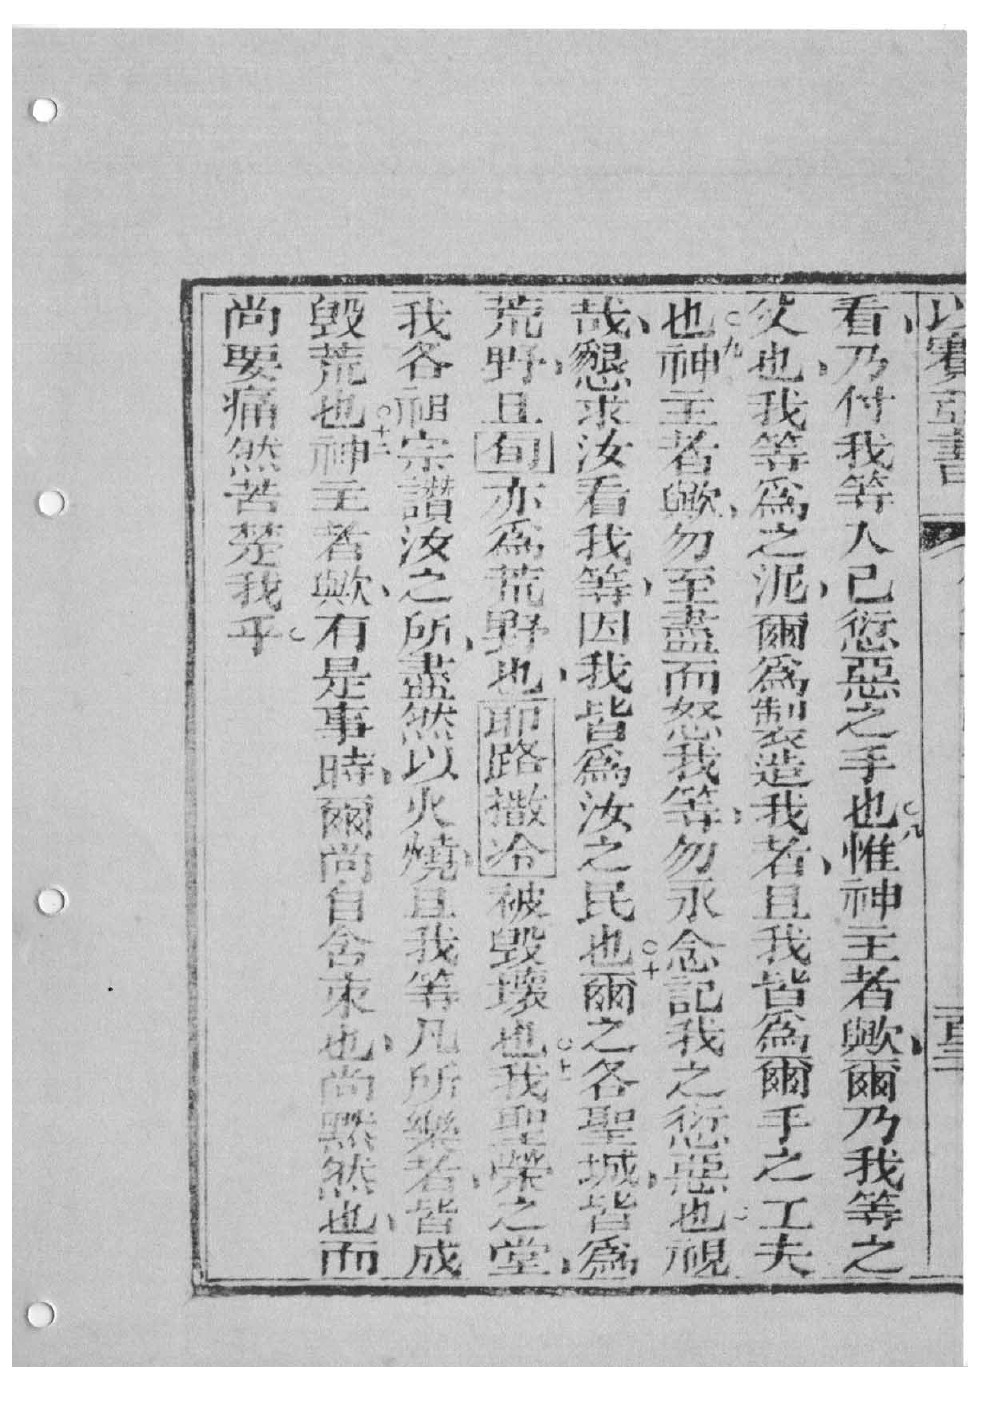 以賽亞書
百三
看乃付我等入己愆惡之手也○八惟神主者歟爾乃我等之
父也我等爲之泥爾爲製造我者且我皆爲爾手之工夫
也○九神主者歟勿至盡而怒我等勿永念記我之愆惡也視
哉懇求汝看我等因我皆爲汝之民也○十爾之各聖城皆爲
荒野且旬亦爲荒野也耶路撒冷被毀壞也○十一我聖榮之堂
我各祖宗讚汝之所盡然以火燒且我等凡所樂者皆成
毀荒也○十二神主者歟有是事時爾尚自含束也尚默然也而
尚要痛然苦楚我乎